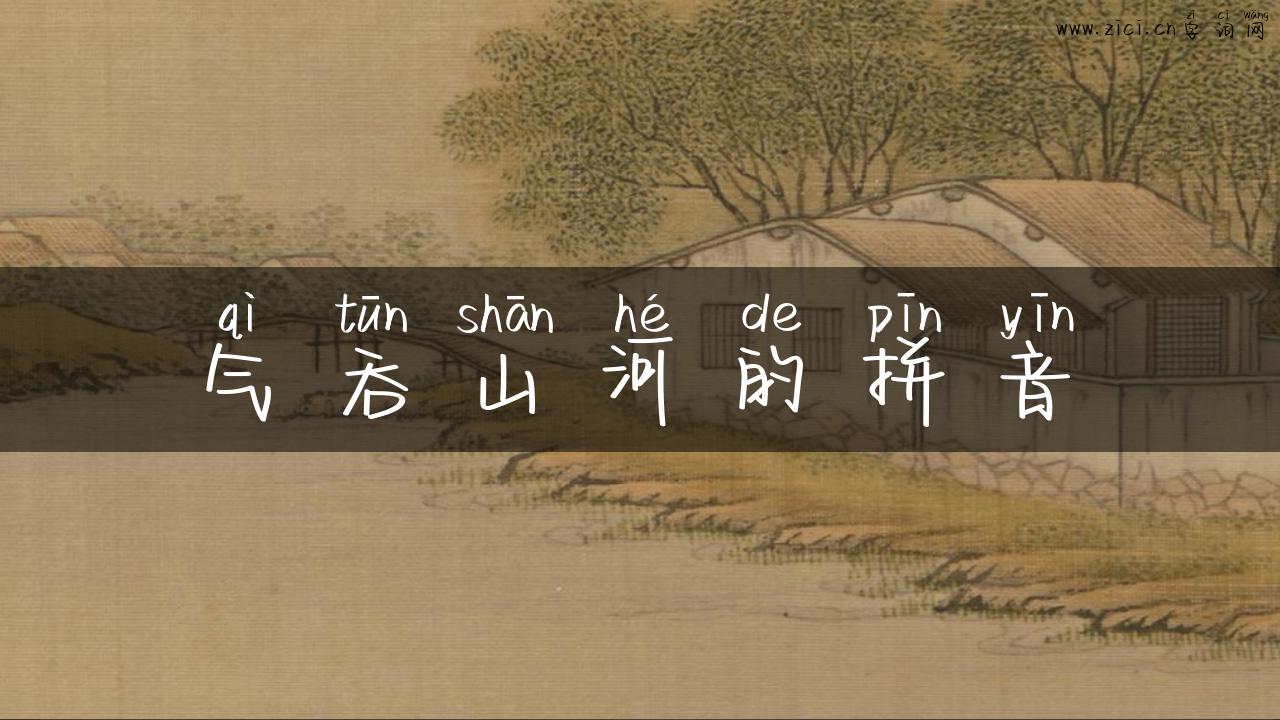 zì cí wǎng
www.zici.cn字词网
qì tūn shān hé de pīn yīn
气吞山河的拼音